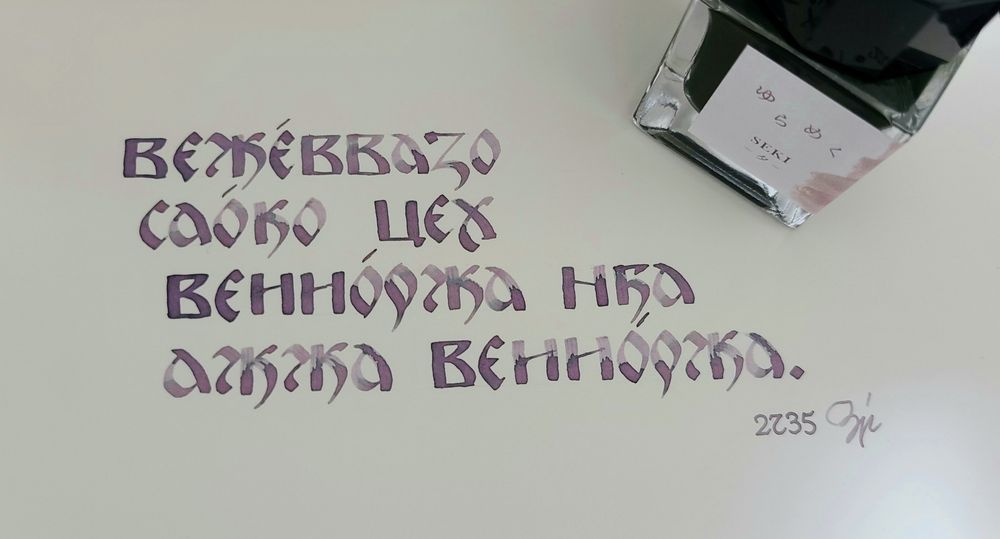 ВЕЖЕ́ВВАЗО
САО́КО ЦЕХ
ВЕННО́УЖА НКА
АЖЖА ВЕННО́УЖА.
ゆらめく
SEKI